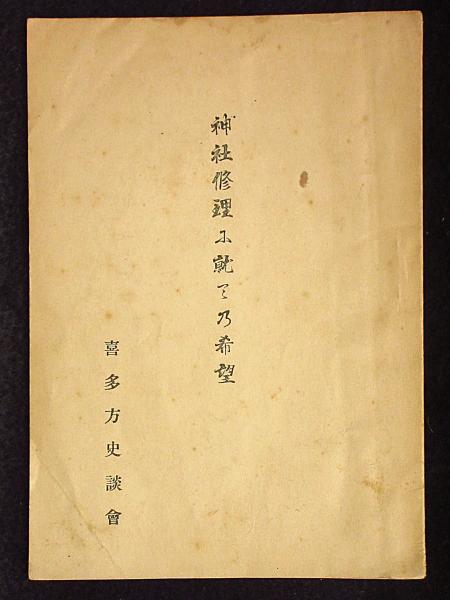 神社修理に就ての希望
喜多方史談會